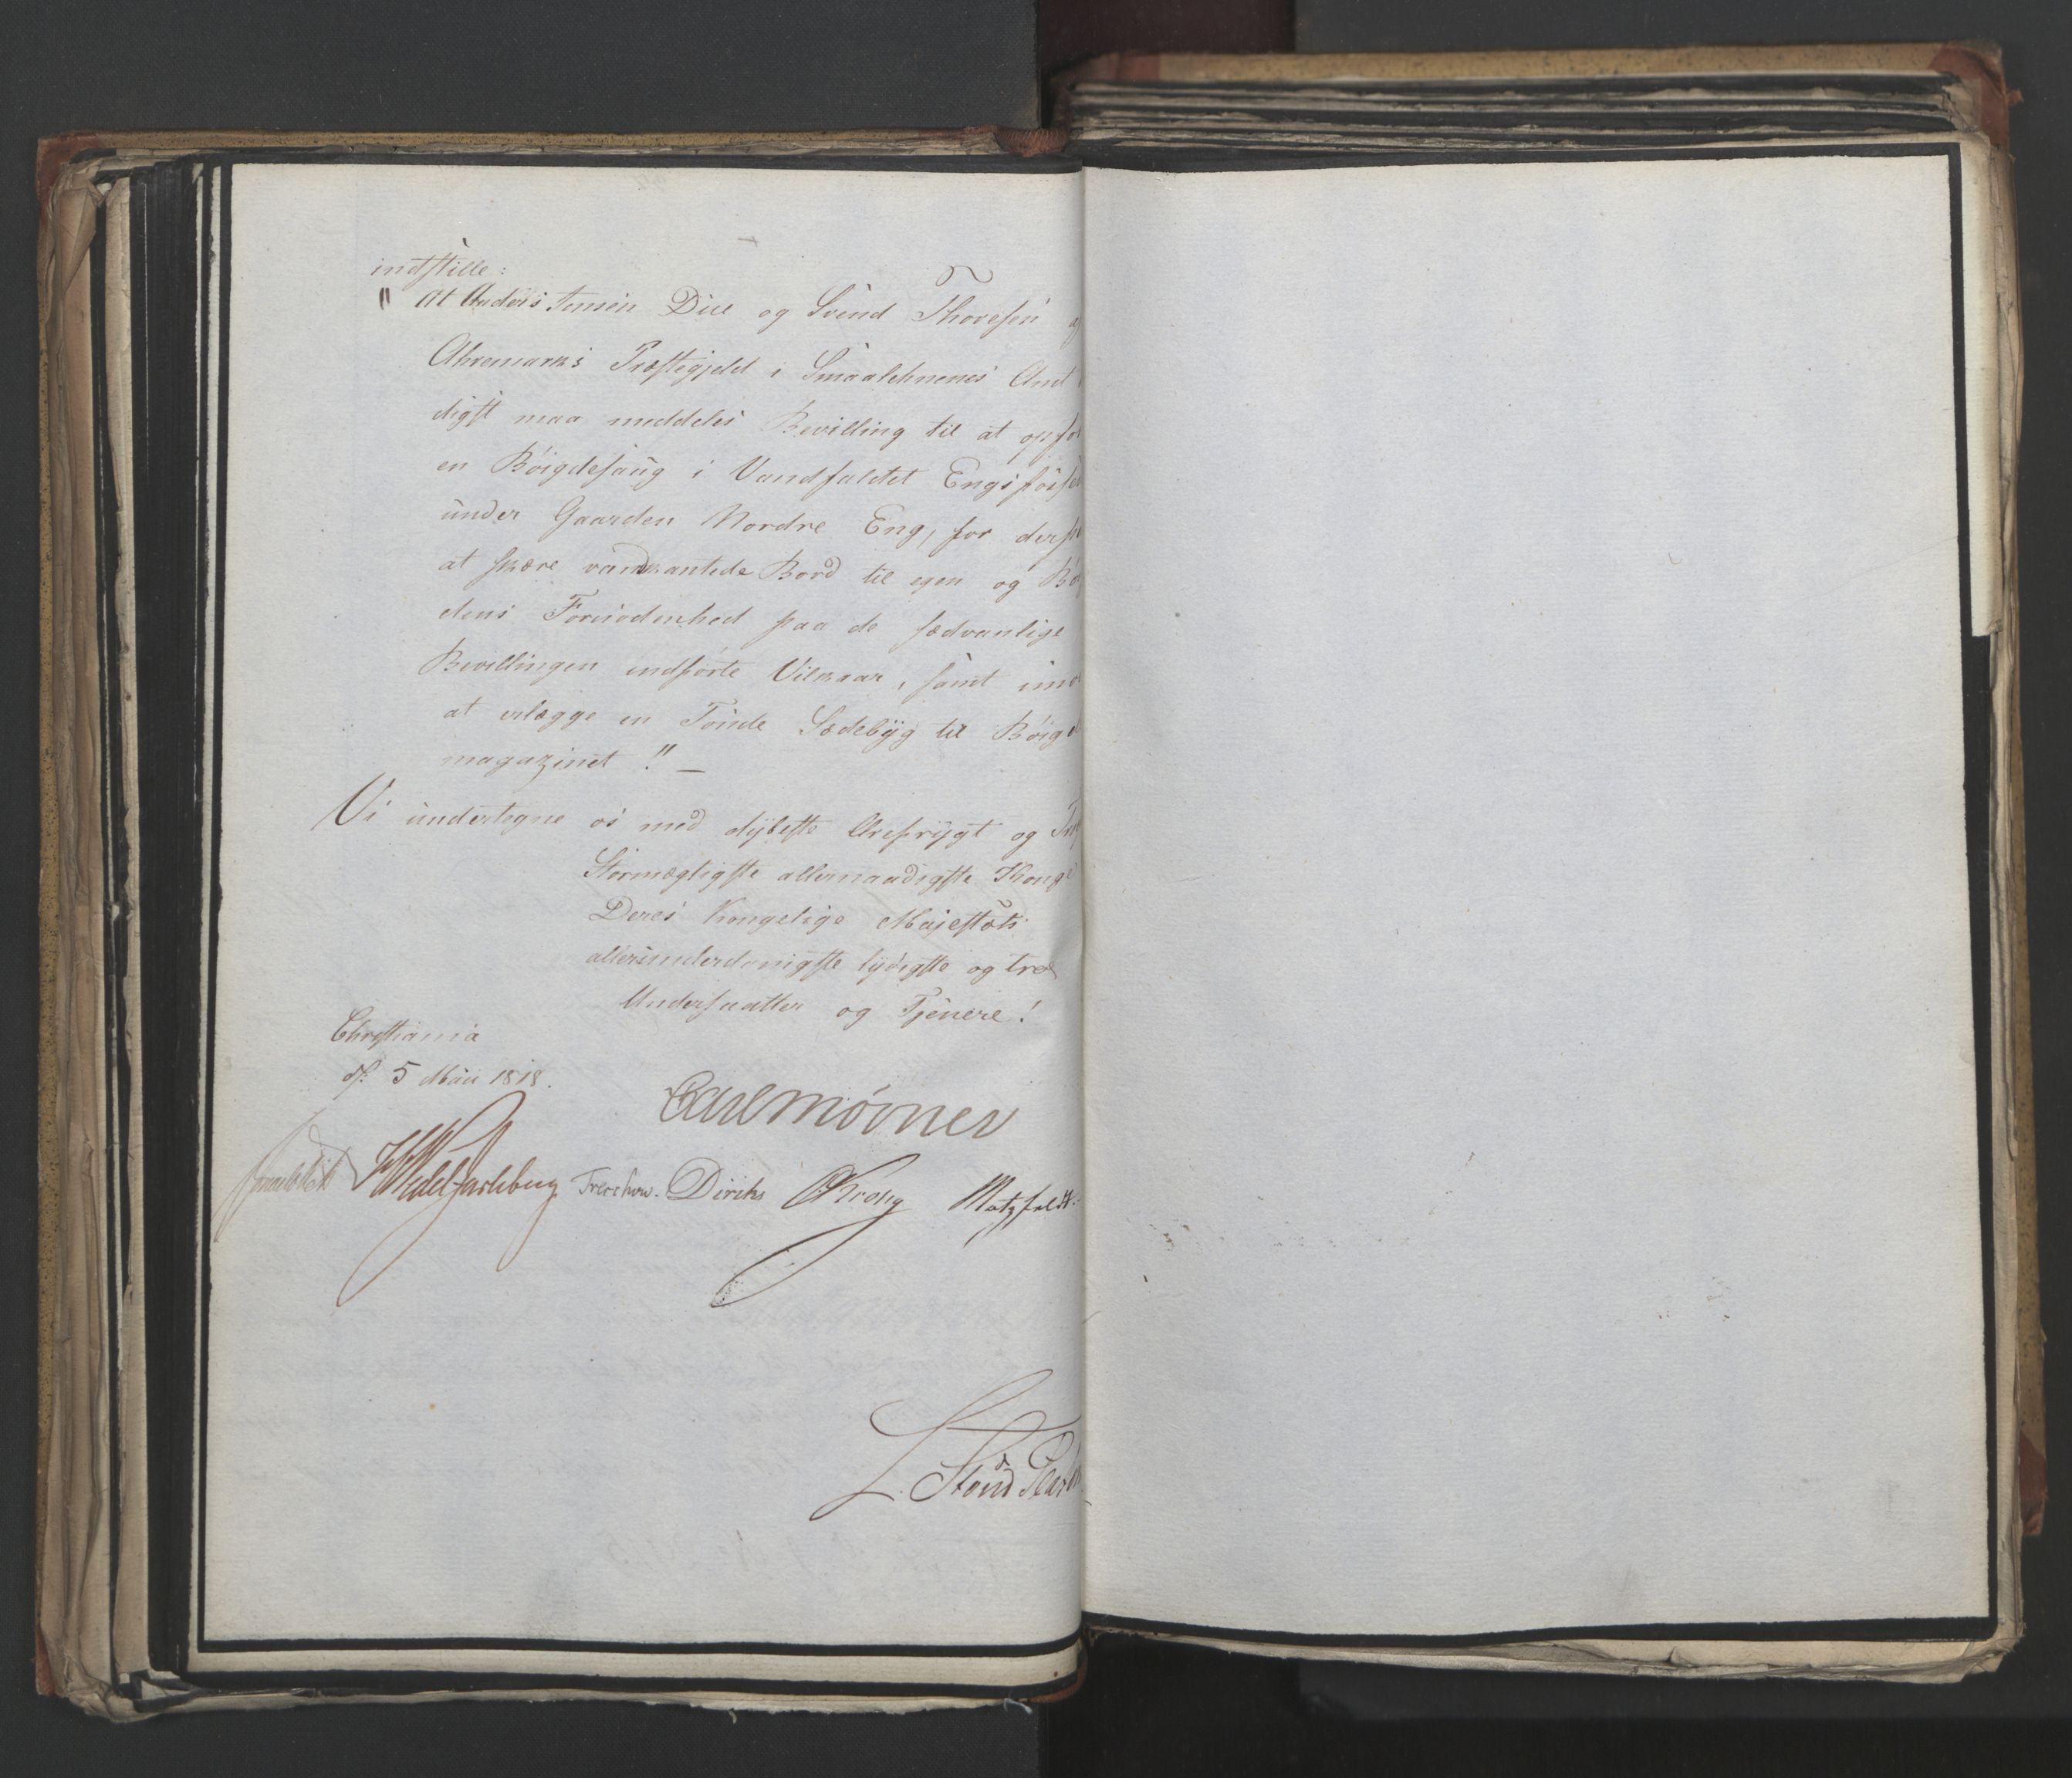 indstille:
" At Anders Jensen Due og Svend Thoresen af
Ahremarks Præstegjeld i Smaalehnenes Amt
digst maa meddeles Bevilling til at opfø
en Böigdesaug i Vandfaldet Engsfosse
under Gaarden Nordre Eng, for derpaa
at skære vandkantede Bord til egen og Bö
dens Fornödenhed paa de sædvanlige
Bevillingen indförte Vilkaar, samt imod
at erlægge en Tönde Sædebÿg til Böigde
magazinet "! —
Vi undertegne os med dÿbeste Ærefrÿgt og
Stormægtigste allernaadigste Konge
Deres Kongelige Majestæts
allerunderdanigste lÿdigste og troe
Undersaatter og Tjenere!
Christiania
d: 5 Mai 1818.
Carl Mörner
HWedel Jarlsberg Treschow. Diriks CKrohg Motzfeldt.
Stoud Plat